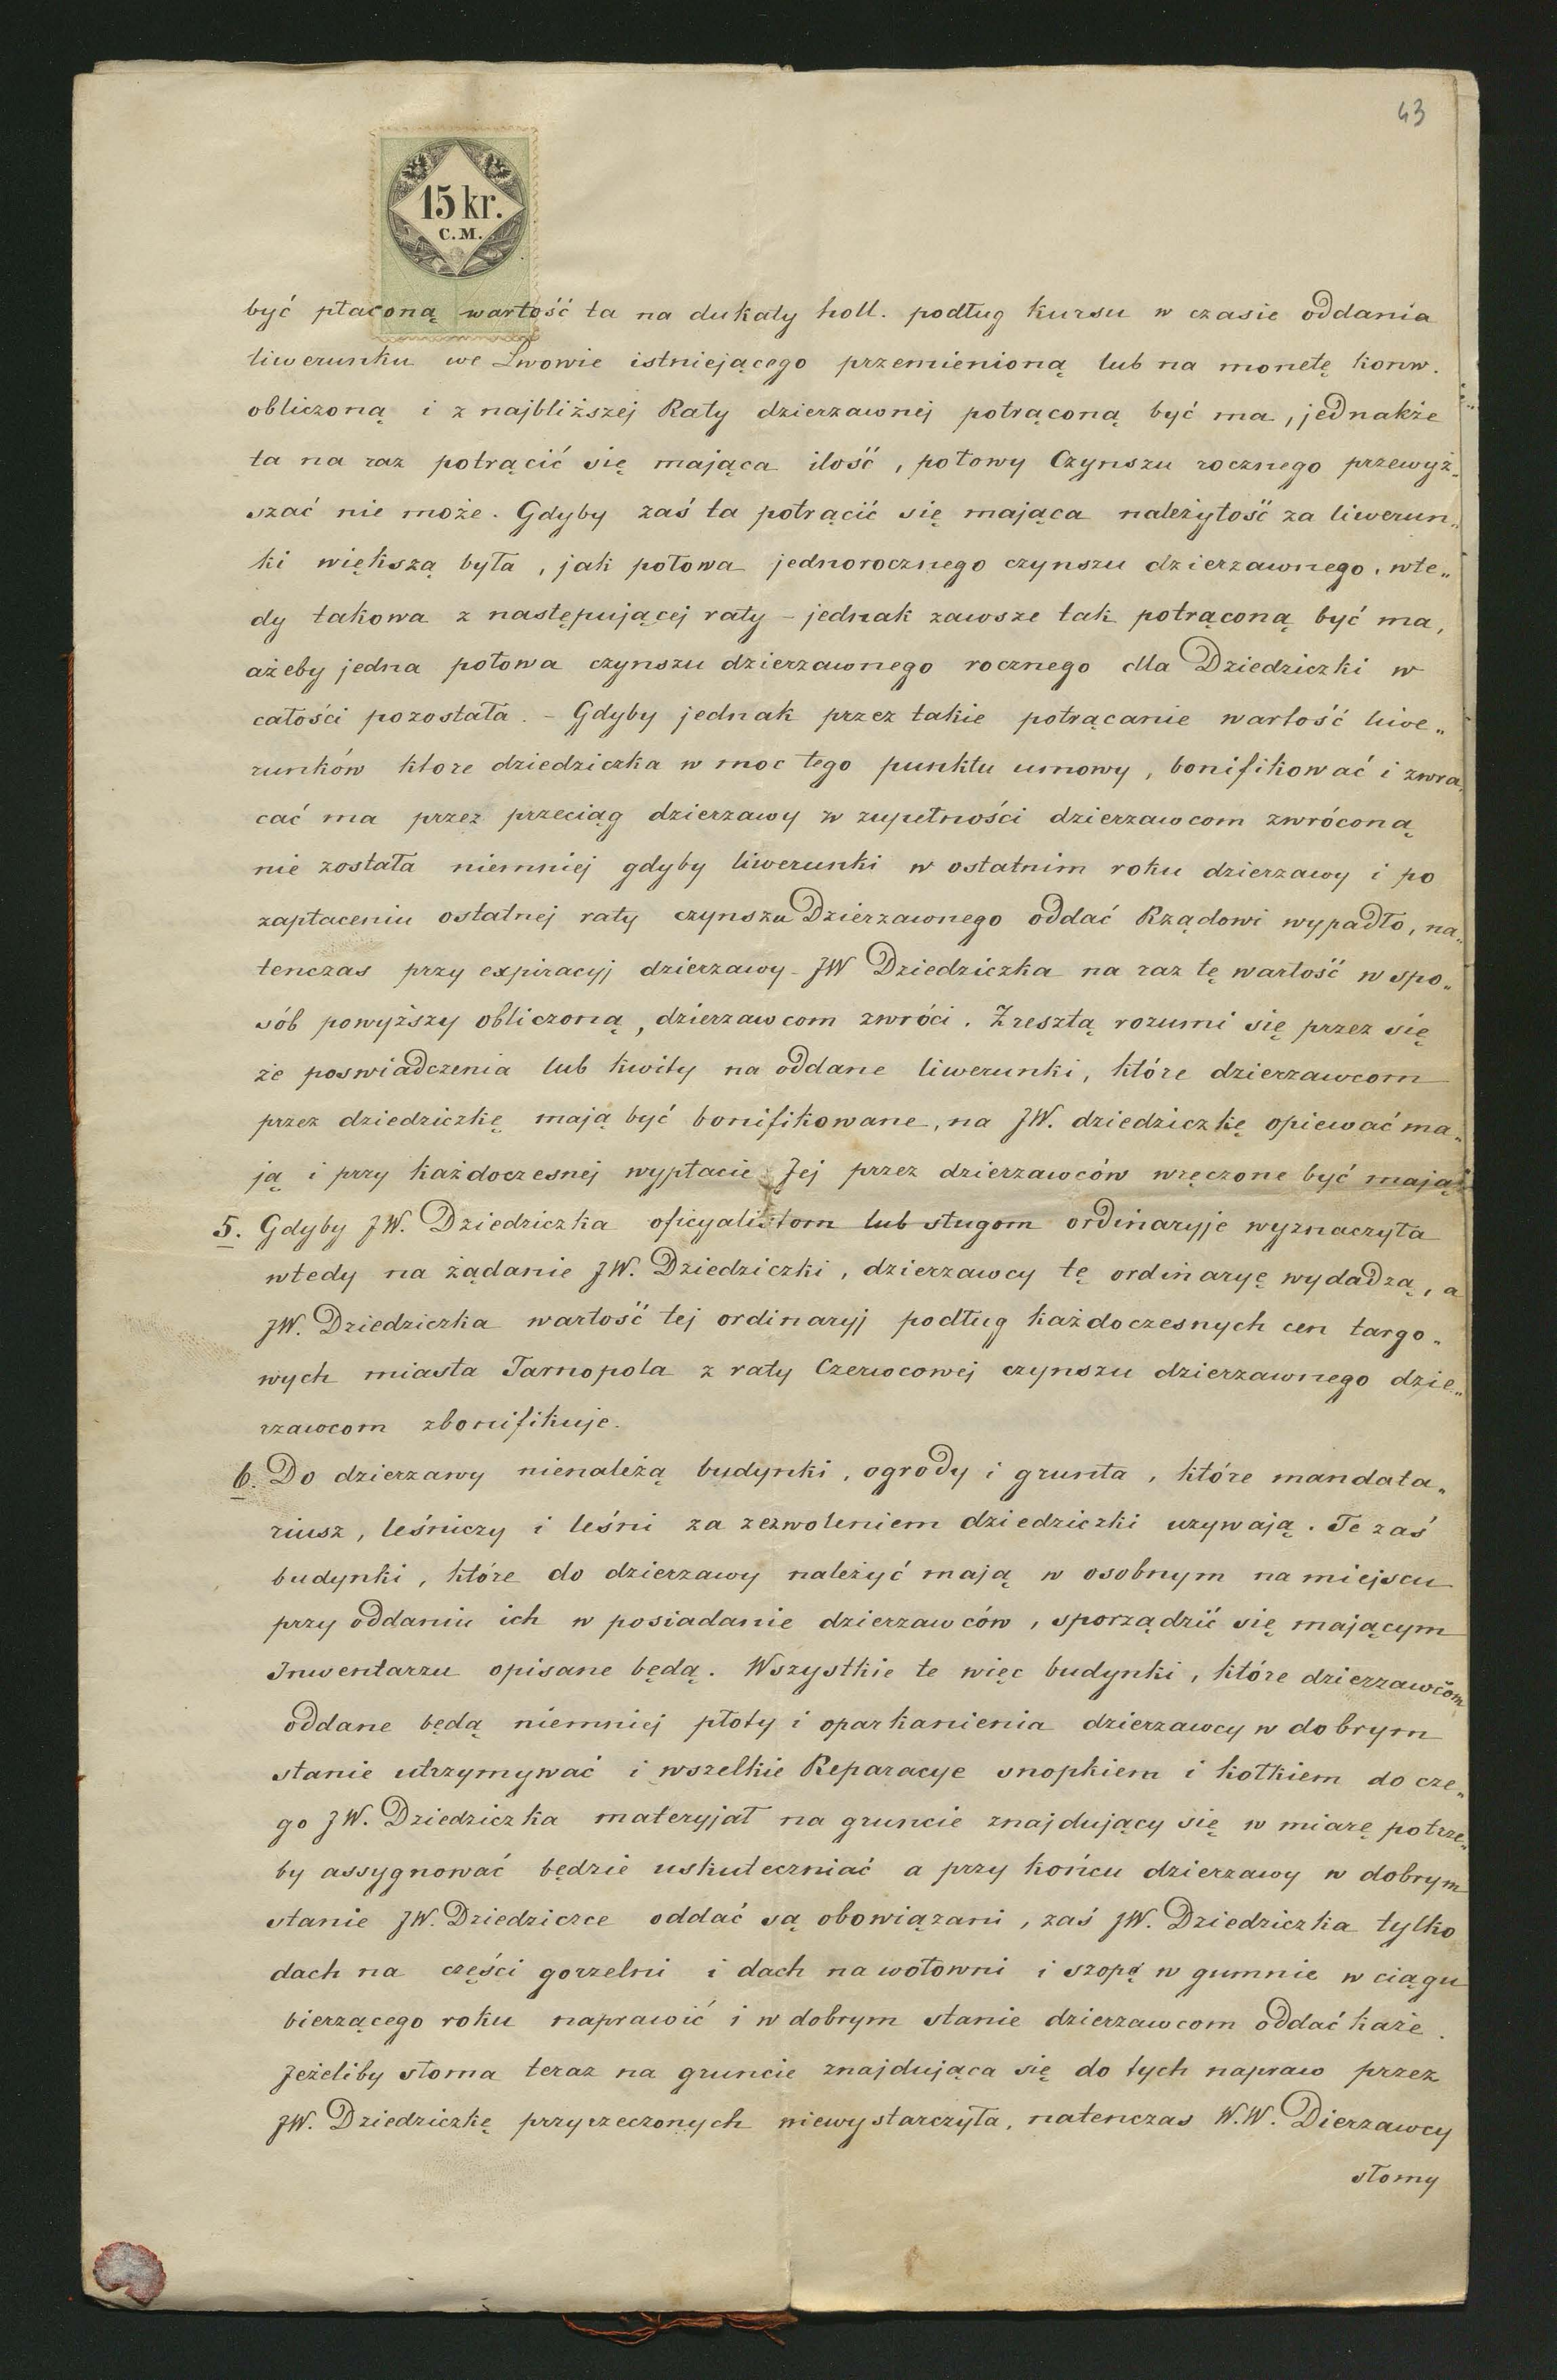 43
15 kr.
C.M.
być płaconą wartość ta na dukaty holl. podług kursu w czasie oddania
liwerunku we Lwowie istniejącego przemienioną lub na monetę konw.
obliczoną i z najbliższej Raty dzierzawnej potrąconą być ma, jednakże
ta na raz potrącić się mająca ilość, połowy Czynszu rocznego przewyż„
szać nie może. Gdyby zaś ta potrącić się mająca należytość za liwerun„
ki większą była, jak połowa jednorocznego czynszu dzierzawnego, wte„
dy takowa z następującej raty – jednak zawsze tak potrąconą być ma,
ażeby jedna połowa czynszu dzierzawnego rocznego dla Dziedziczki w
całości pozostała. – Gdyby jednak przez takie potrącanie wartość liwe„
runków ktore dziedziczka w moc tego punktu umowy, bonifikować i zwra„
cać ma przez przeciąg dzierzawy w zupełności dzierzawcom zwróconą
nie została niemniej gdyby liwerunki w ostatnim roku dzierzawy i po
zapłaceniu ostatnej raty czynszu Dzierzawnego oddać Rządowi wypadło, na„
tenczas przy expiracyj dzierzawy – JW Dziedziczka na raz tę wartość w spo„
sób powyższy obliczoną, dzierzawcom zwróci. Zresztą rozumi się przez się
że poswiadczenia lub kwity na oddane liwerunki, które dzierzawcom
przez dziedziczkę mają być bonifikowane, na JW. dziedziczkę opiewać ma„
ją i przy każdoczesnej wypłacie Jej przez dzierzawców wręczone być mają.
5. Gdyby JW. Dziedziczka oficyalistom lub sługom ordinaryje wyznaczyła
wtedy na żądanie JW. Dziedziczki, dzierzawcy tę ordinaryę wydadzą, a
JW. Dziedziczka wartość tej ordinaryj podług każdoczesnych cen targo„
wych miasta Tarnopola z raty Czerwcowej czynszu dzierzawnego dzie„
rzawcom zbonifikuje.
6. Do dzierzawy nienależą budynki, ogrody i grunta, które mandata„
riusz, leśniczy i leśni za zezwoleniem dziedziczki uzywają. Te zaś
budynki, które do dzierzawy należyć mają w osobnym na miejscu
przy oddaniu ich w posiadanie dzierzawców, sporządzić się mającym
Inwentarzu opisane będą. Wszystkie te więc budynki, które dzierzawcom
oddane będą niemniej płoty i oparkanienia dzierzawcy w dobrym
stanie utrzymywać i wszelkie Reparacye snopkiem i kołkiem do cze„
go JW. Dziedziczka materyjał na gruncie znajdujący się w miarę potrze„
by assygnować będzie uskuteczniać a przy końcu dzierzawy w dobrym
stanie JW. Dziedziczce oddać są obowiązani, zaś JW. Dziedziczka tylko
dach na części gorzelni i dach na wołowni i szopę w gumnie w ciągu
bierzącego roku naprawić i w dobrym stanie dzierzawcom oddać każe.
Jeżeliby słoma teraz na gruncie znajdująca się do tych napraw przez
JW. Dziedziczkę przyrzeczonych niewystarczyła, natenczas W.W. Dierzawcy
słomy